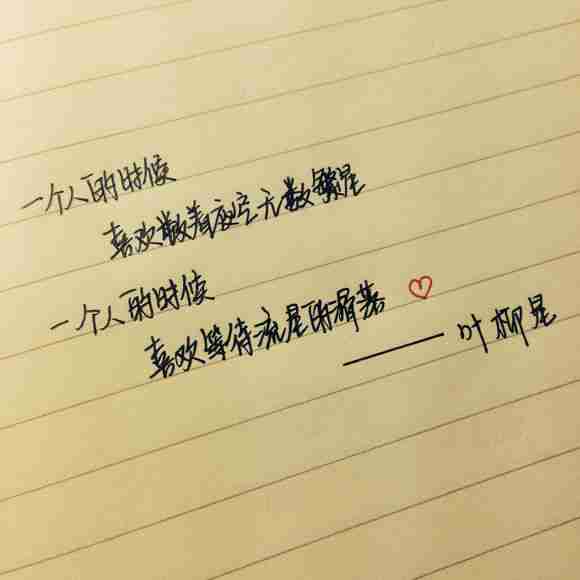 一个人的时候
喜欢数着夜空无数繁星
一个人的时候
喜欢等待流星的滑落
——叶柳星